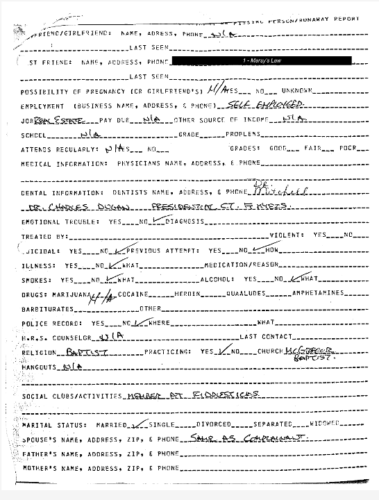 MISSING PERSON/RUNAWAY REPORT
FRIEND/GIRLFRIEND: NAME, ADDRESS, PHONE N/A
LAST SEEN
ST FRIEND: NAME, ADDRESS, PHONE 1 - Marsy's Law
LAST SEEN
POSSIBILITY OF PREGNANCY (OR GIRLFRIEND'S) N/A YES___ NO___ UNKNOWN
EMPLOYMENT (BUSINESS NAME, ADDRESS, & PHONE) SELF EMPLOYED
JOB REAL ESTATE PAY DUE N/A OTHER SOURCE OF INCOME N/A
SCHOOL N/A GRADE PROBLEMS
ATTENDS REGULARLY: N/A YES___ NO___ GRADES: GOOD___ FAIR___ POOR___
MEDICAL INFORMATION: PHYSICIANS NAME, ADDRESS, & PHONE
DENTAL INFORMATION: DENTISTS NAME, ADDRESS, & PHONE DR. Mitchell
DR. CHARLES PRESIDENTIAL CT. FT MYERS.
EMOTIONAL TROUBLE: YES___ NO ✓ DIAGNOSIS
TREATED BY: VIOLENT: YES___ NO___
SUICIDAL: YES___ NO ✓ PREVIOUS ATTEMPT: YES___ NO ✓ HOW
ILLNESS: YES___ NO ✓ WHAT MEDICATION/REASON
SMOKES: YES___ NO ✓ WHAT ALCOHOL: YES___ NO ✓ WHAT
DRUGS: MARIJUANA N/A COCAINE HEROIN QUALUDES AMPHETAMINES
BARBITURATES OTHER
POLICE RECORD: YES___ NO ✓ WHERE WHAT
H.R.S. COUNSELOR N/A LAST CONTACT
RELIGION BAPTIST PRACTICING: YES ✓ NO___ CHURCH McGREGOR BAPTIST.
HANGOUTS N/A
SOCIAL CLUBS/ACTIVITIES MEMBER AT FIDDLESTICKS
MARITAL STATUS: MARRIED ✓ SINGLE DIVORCED SEPARATED WIDOWED
SPOUSE'S NAME, ADDRESS, ZIP, & PHONE SAME AS COMPLAINANT.
FATHER'S NAME, ADDRESS, ZIP, & PHONE
MOTHER'S NAME, ADDRESS, ZIP, & PHONE